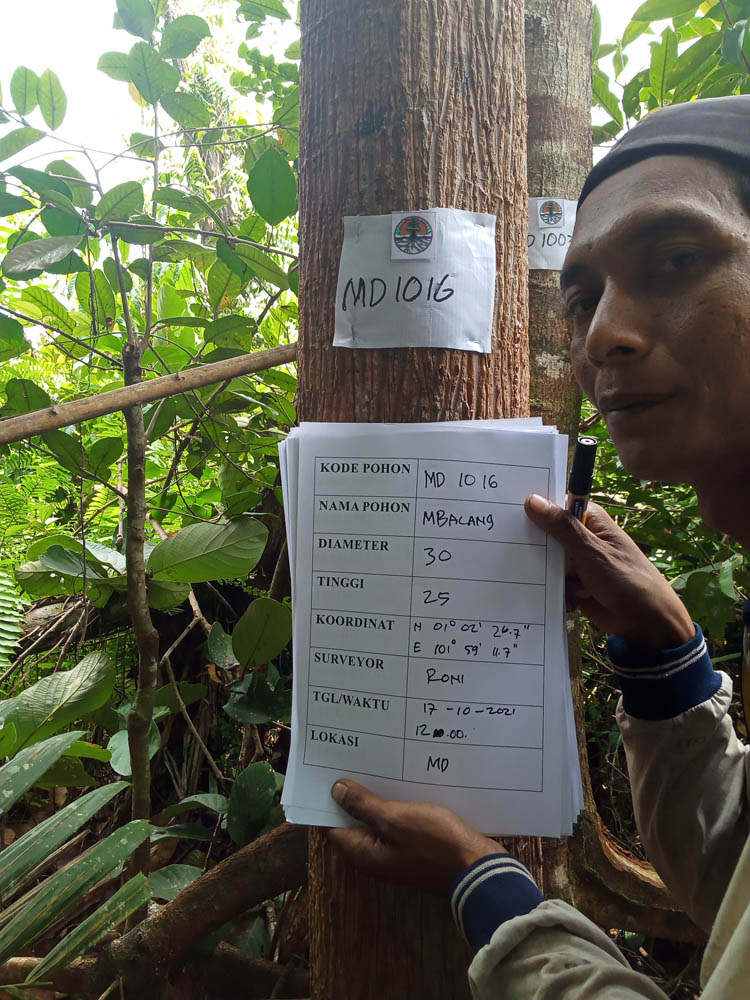 MD 1016
D 1003
KODE POHON MD 1016
NAMA POHON MBACANG
DIAMETER 30
TINGGI 25
KOORDINAT N 01° 02' 26.7"
E 101° 59' 11.7"
SURVEYOR RONI
TGL/WAKTU 17-10-2021
12.00.
LOKASI MD